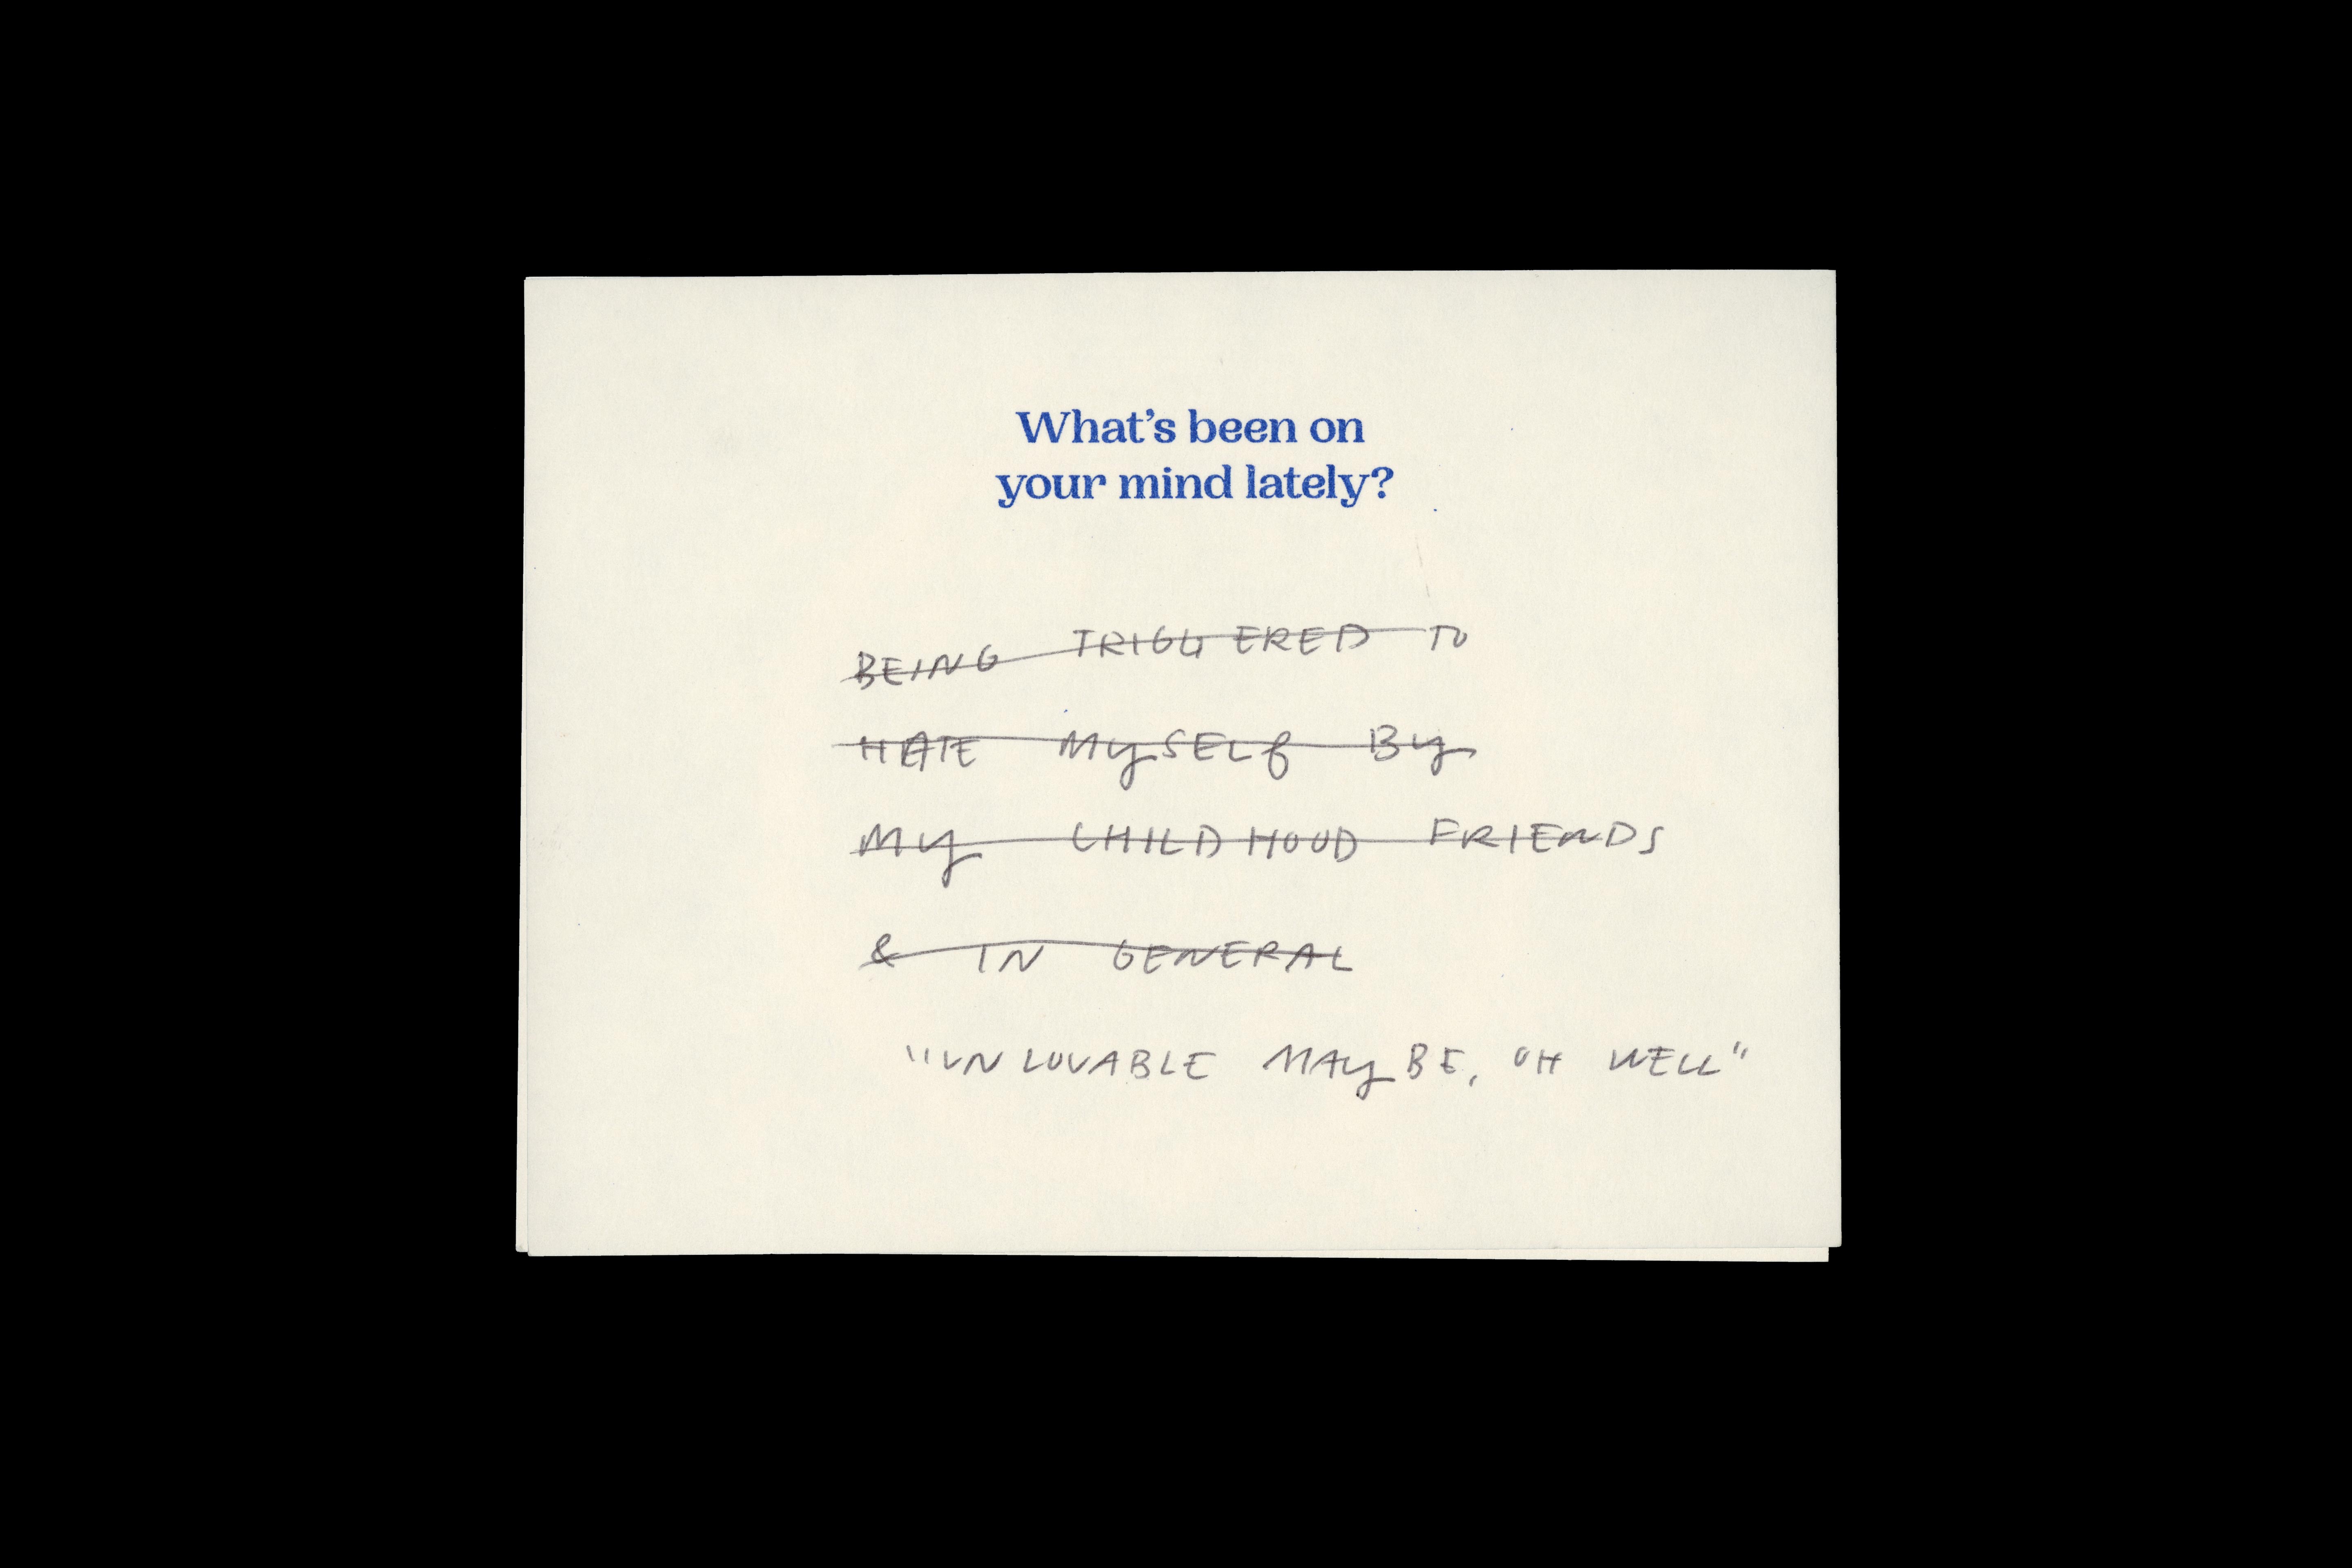 What's been on
your mind lately?
BEING TRIGGERED TO
HATE MYSELF BY
MY CHILDHOOD FRIENDS
& IN GENERAL
"UNLOVABLE MAYBE, OH WELL"